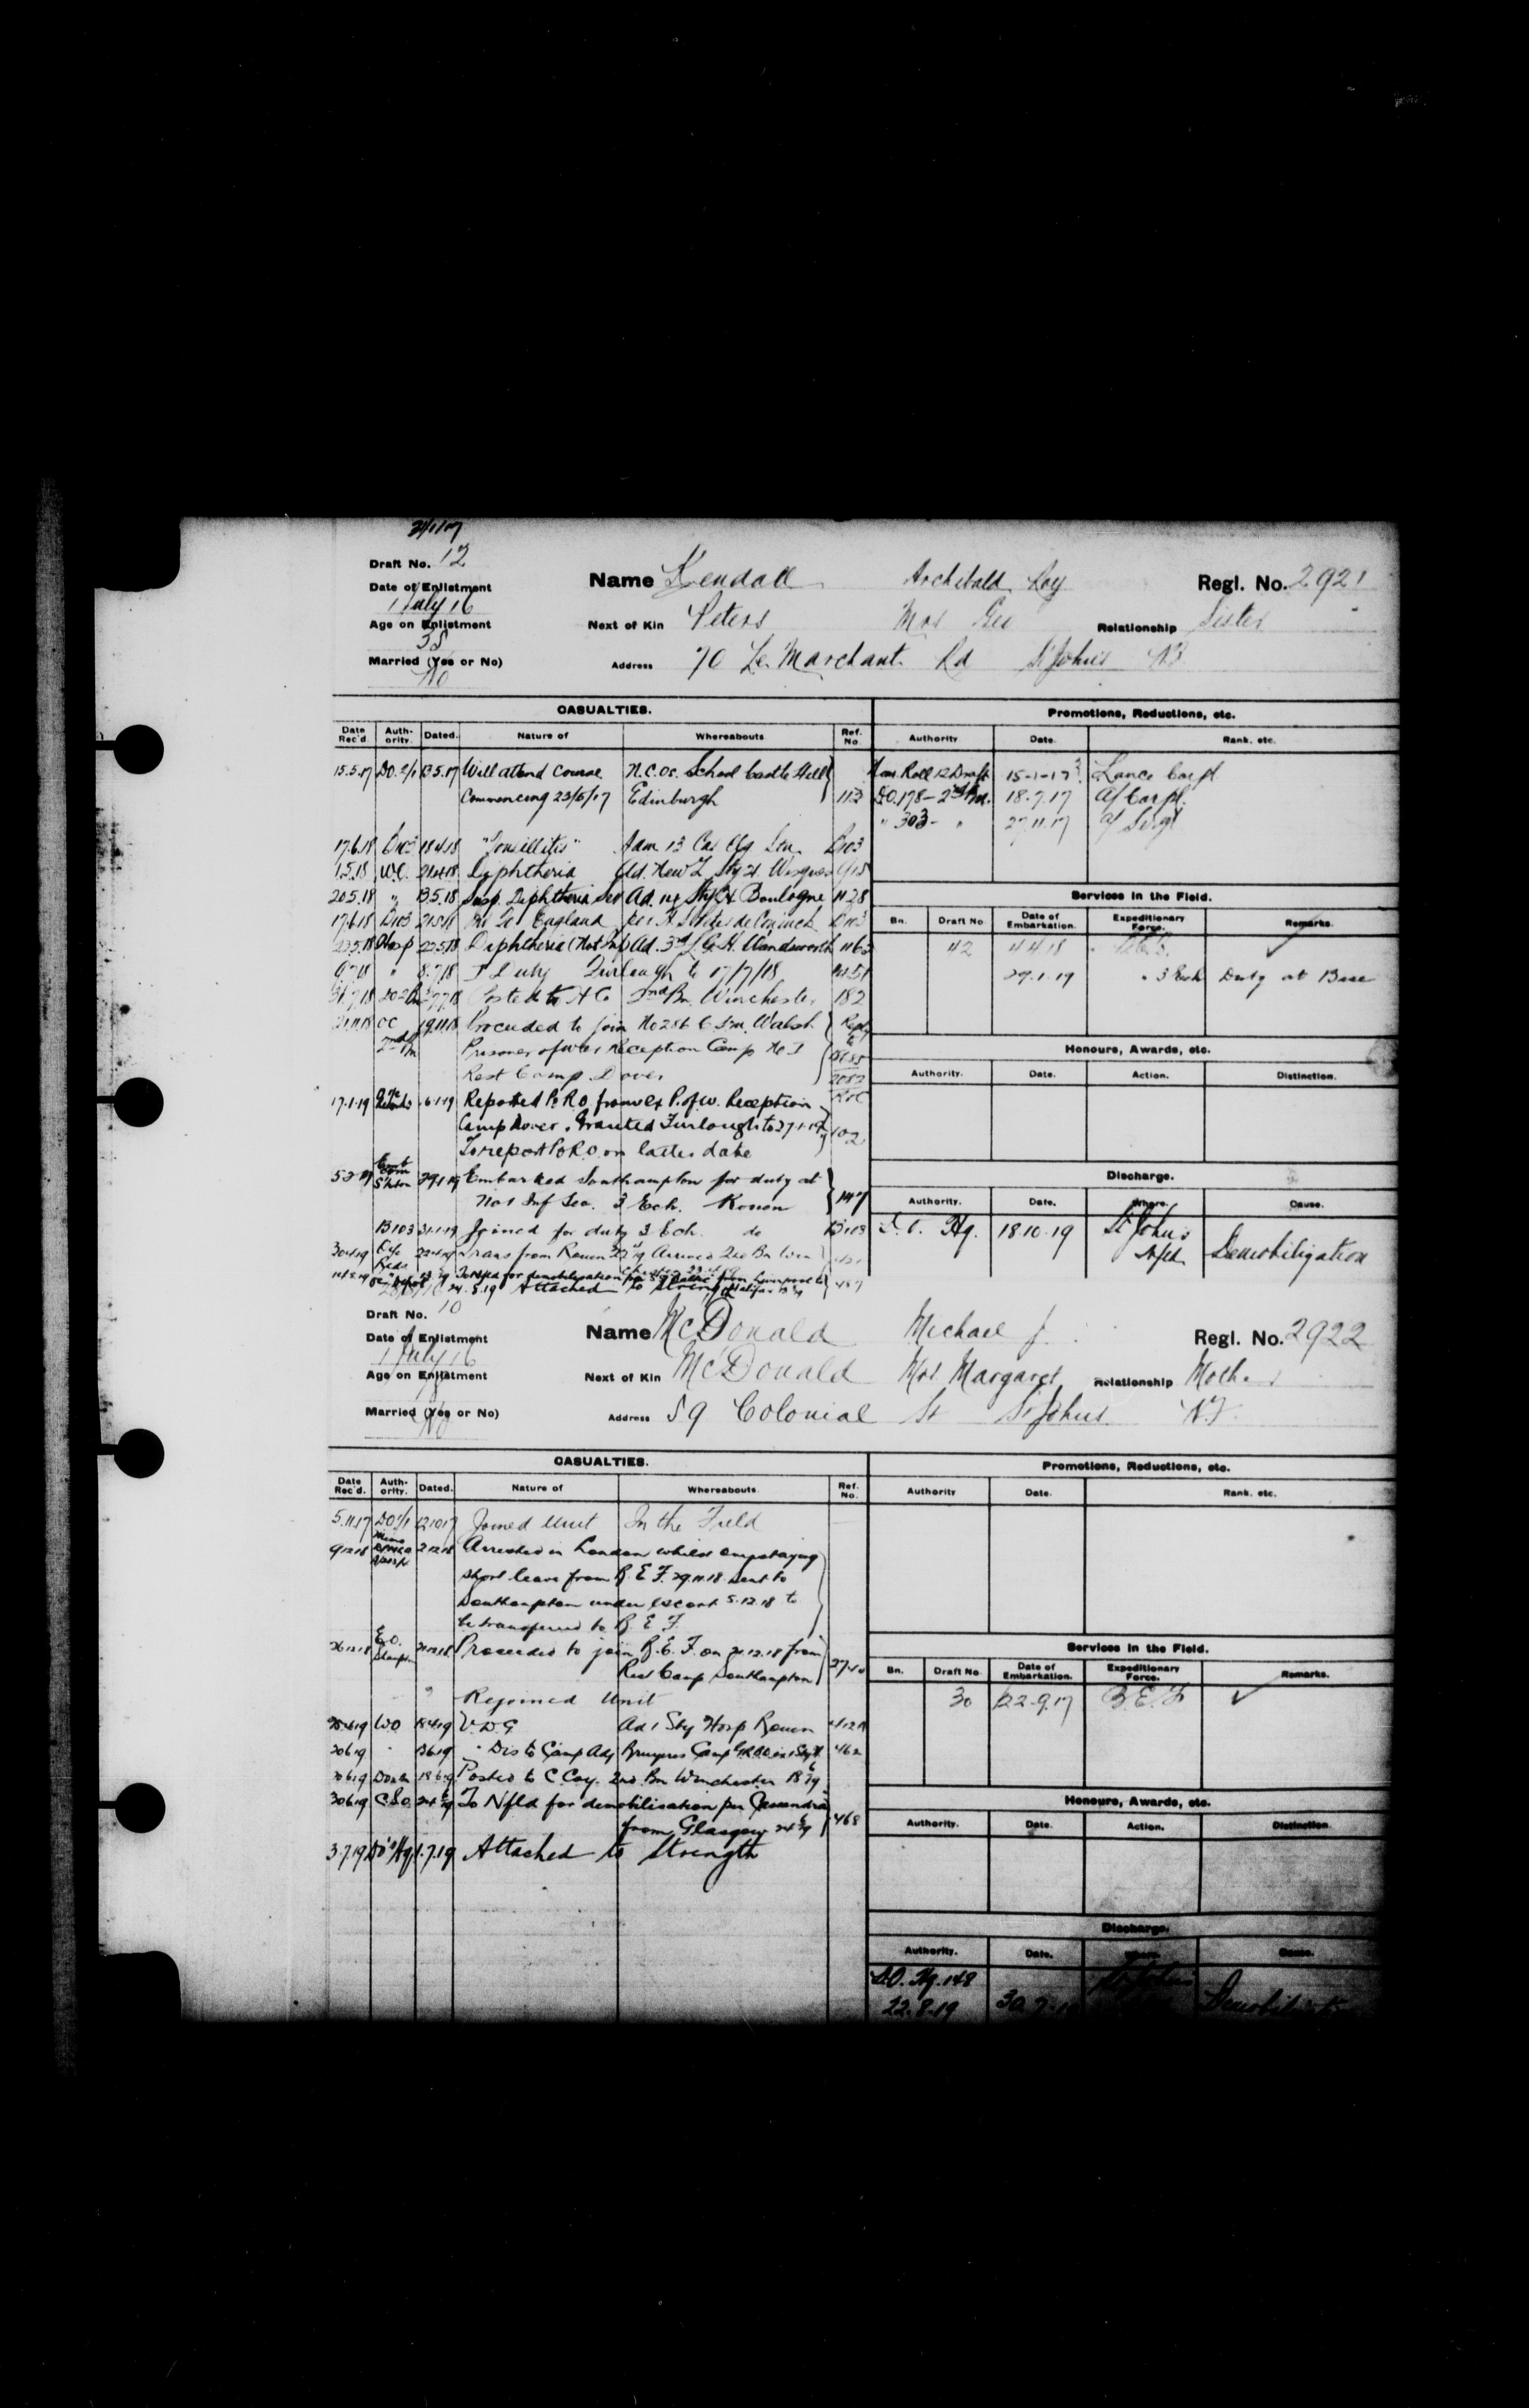 Draft No. 12
Date of Enlistment
1 July 16
Age on Enlistment
Married (Yes or No)
No
Name Kendall Archibald Roy Regl. No. 2921
Next of Kin Peters Mrs Geo Relationship Sister
Address 70 Le Marchant Rd St John's N.F.
CASUALTIES.
Date Rec'd. Auth-ority. Dated. Nature of Whereabouts Ref. No.
15.5.17 D.O. 2/1 13.5.17 Will attend Course N.C.Os. School Castle Hill
Commencing 23/5/17 Edinburgh 113
17.6.18 B103 18.4.18 "Tonsillitis" Adm. 13 Cas Clg Stn. B103
1.5.18 W.O. 21.4.18 Diphtheria Ad. New Z. Sty H. Wisques 915
20.5.18 " 13.5.18 Susp. Diphtheria Sev Ad. 14 Sty H. Boulogne 1128
17.6.18 B103 21.5.18 To England
22.5.18 Diphtheria Ad. 3rd L.G.H. Wandsworth 1163
9.7.18 " 8.7.18 Duty Furlough to 17/7/18
Posted to H Co 2nd Bn. Winchester 182
21.11.18 OC 19.11.18 Proceeded to join No 286 C.S.M. Walsh
2nd Bn Prisoner of War Reception Camp No 1
Rest Camp Dover
17.1.19 Reported P.&R.O. from Reception
Camp Dover. Granted Furlough to 27.1.19 102
To report P&R.O. on latter date
5.2.19 29.1.19 Embarked Southampton for duty at
No 1 Inf Sec. 3 Ech. Rouen 147
B103 31.1.19 Joined for duty 3 Ech. do B103
30.4.19 Trans from Rouen Arrived 2nd Bn Win
To Nfld for demobilisation
24.5.19 Attached to Strength
Promotions, Reductions, etc.
Authority Date. Rank. etc.
Nom. Roll 12 Draft 15-1-17 Lance Corpl
D.O. 178 - 2nd Bn. 18.7.17 A/Corpl.
" 303 - " 27.11.17 A/Sergt
Services in the Field.
Bn. Draft No Date of Embarkation. Expeditionary Force. Remarks.
42 4.4.18 B.E.F. ✓
29.1.19 " 3 Ech Duty at Base
Honours, Awards, etc.
Authority. Date. Action. Distinction.
Discharge.
Authority. Date. Where. Cause.
Hq. 18.10.19 St John's Nfld. Demobilization
Draft No. 10
Date of Enlistment
1 July 16
Age on Enlistment
Married (Yes or No)
No
Name McDonald Michael J. Regl. No. 2922
Next of Kin McDonald Mrs Margaret Relationship Mother
Address 59 Colonial St St John's N.F.
CASUALTIES.
Date Rec'd. Auth-ority. Dated. Nature of Whereabouts Ref. No.
5.11.17 D.O. 1/1 12.10.17 Joined Unit In the Field
9.12.18 2.12.18 Arrested in London whilst overstaying
short leave from B.E.F. 29.11.18. Sent to
Southampton under escort 5.12.18 to
be transferred to B.E.F.
26.12.18 E.O. S'hampton 21.12.18 Proceeded to join B.E.F. on 21.12.18 from
Rest Camp Southampton 2740
Rejoined Unit
W.O. V.D.G. Ad 1 Sty Hosp Rouen
20.6.19 " 13.6.19 " Dis to Camp Adj Bruyeres Camp 462
18.6.19 Posted to C Coy. 2nd Bn Winchester
30.6.19 To Nfld for demobilisation per Cassandra
from Glasgow 468
3.7.19 1.7.19 Attached to Strength
Promotions, Reductions, etc.
Authority Date. Rank. etc.
Services in the Field.
Bn. Draft No Date of Embarkation. Expeditionary Force. Remarks.
30 22.9.17 B.E.F. ✓
Honours, Awards, etc.
Authority. Date. Action. Distinction.
Discharge.
Authority. Date. Where. Cause.
D.O. Hq. 148 St John's
22.8.19